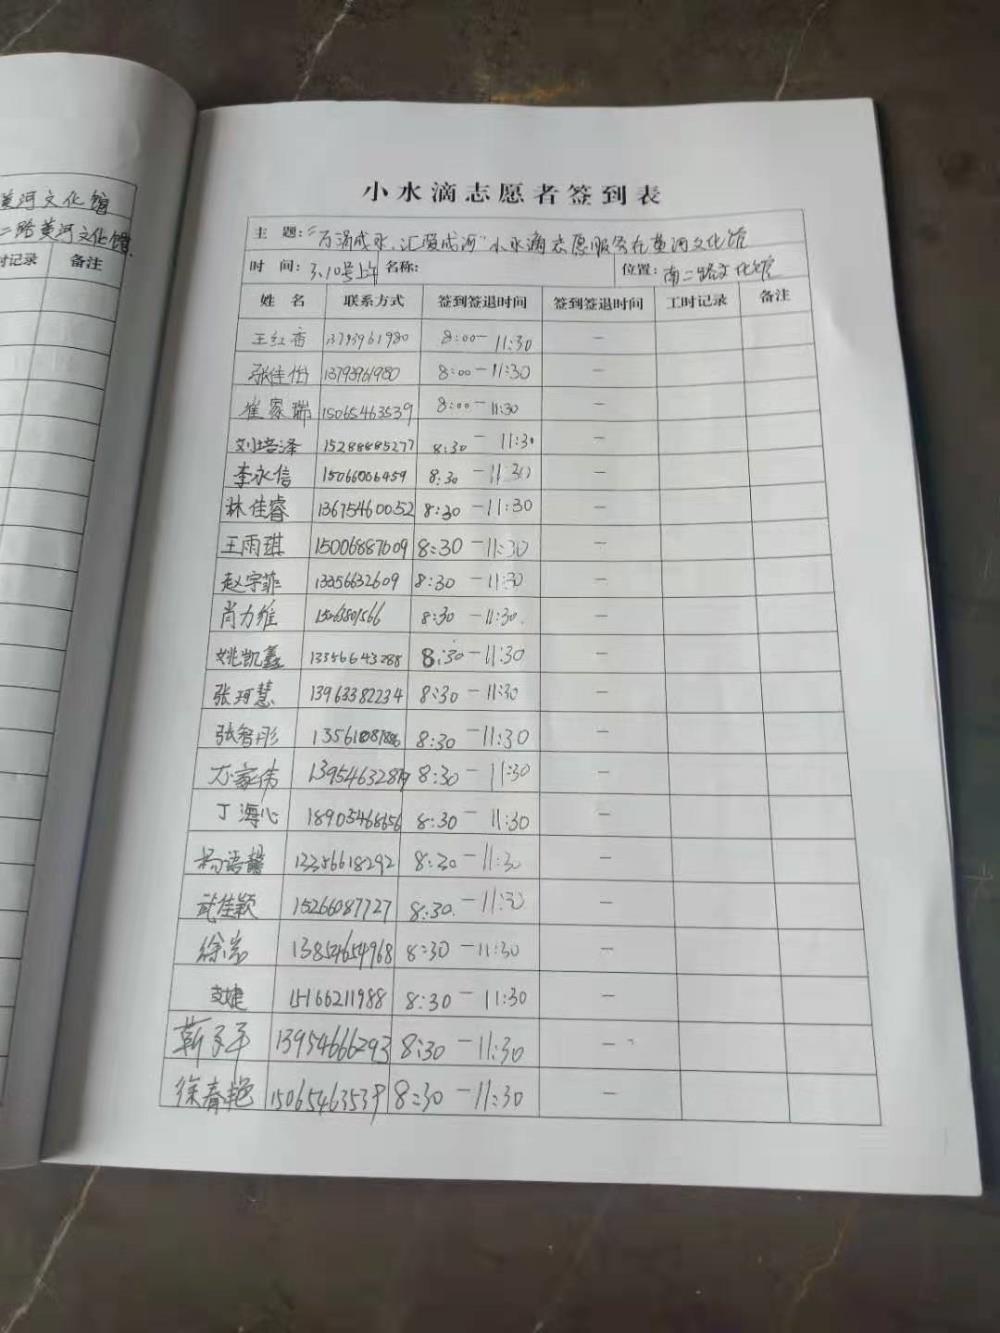 黄河文化馆
二路黄河文化馆
时记录 备注
小水滴志愿者签到表
主 题:"万涓成水,汇聚成河"小水滴志愿服务在黄河文化馆
时 间: 3.10号上午 名称: 位置: 南二路文化馆
姓 名 联系方式 签到签退时间 签到签退时间 工时记录 备注
王红香 13793961980 8:00-11:30 —
张佳怡 13793961980 8:00-11:30 —
崔家瑞 15065463539 8:00-11:30 —
刘培泽 15288885277 8:30-11:30 —
李永信 15066006459 8:30-11:30 —
林佳睿 13675460052 8:30-11:30 —
王雨琪 15006887009 8:30-11:30 —
赵宇菲 13356632609 8:30-11:30 —
肖力维 8:30-11:30 —
姚凯鑫 13356643288 8:30-11:30 —
张珂慧 13963382234 8:30-11:30 —
张智彤 8:30-11:30 —
家伟 8:30-11:30 —
丁海心 18905468656 8:30-11:30 —
杨语馨 13356618292 8:30-11:30 —
武佳颖 15266087727 8:30-11:30 —
徐岩 13854654968 8:30-11:30 —
支婕 15166211988 8:30-11:30 —
靳 13954666293 8:30-11:30 —
徐春艳 15065463539 8:30-11:30 —